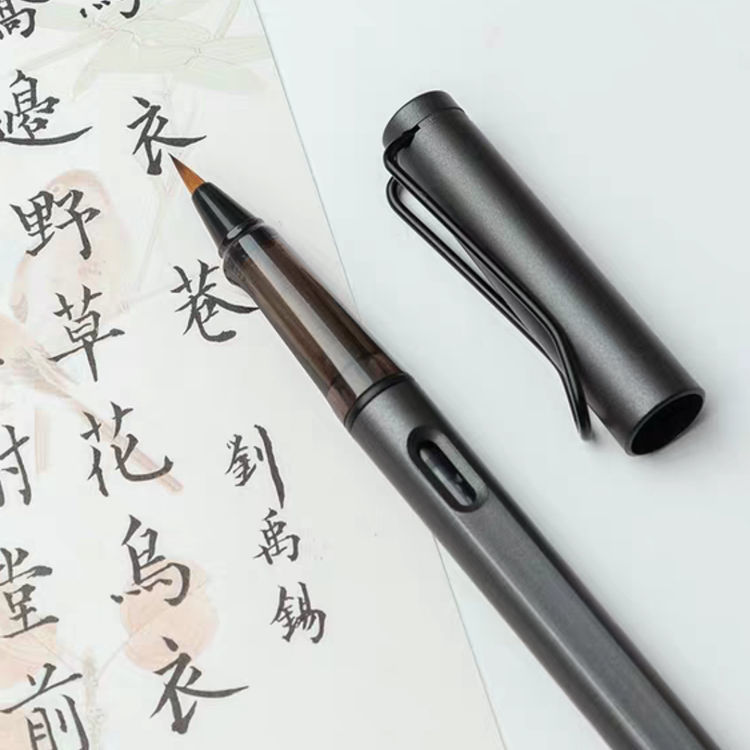 烏衣巷
劉禹錫
橋邊野草花烏衣
堂前